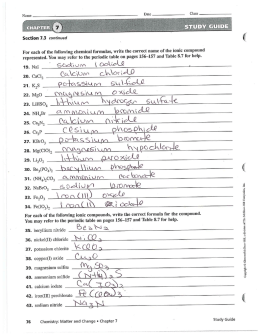 Name Date Class
CHAPTER 7 STUDY GUIDE
Section 7.3 continued
For each of the following chemical formulas, write the correct name of the ionic compound
represented. You may refer to the periodic table on pages 156–157 and Table 8.7 for help.
19. NaI sodium iodide
20. CaCl₂ calcium chloride
21. K₂S potassium sulfide
22. MgO magnesium oxide
23. LiHSO₄ lithium hydrogen sulfate
24. ammonium bromide
25. calcium nitride
26. Cs₃P cesium phosphide
27. KBrO₃ potassium bromate
28. magnesium hypochlorite
29. Li₂O₂ lithium peroxide
30. beryllium phosphate
31. ammonium carbonate
32. NaBrO₃ sodium bromate
33. Fe₂O₃ iron(III) oxide
34. iron(II)
For each of the following ionic compounds, write the correct formula for the compound.
You may refer to the periodic table on pages 156–157 and Table 8.7 for help.
35. beryllium nitride Be₃N₂
36. nickel(II) chloride NiCl₂
37. potassium chlorite KClO₂
38. copper(I) oxide Cu₂O
39. magnesium sulfite MgSO₃
40. ammonium sulfide (NH₄)₂S
41. calcium iodate Ca(IO₃)₂
42. iron(III) perchlorate
43. sodium nitride Na₃N
76 Chemistry: Matter and Change • Chapter 7 Study Guide